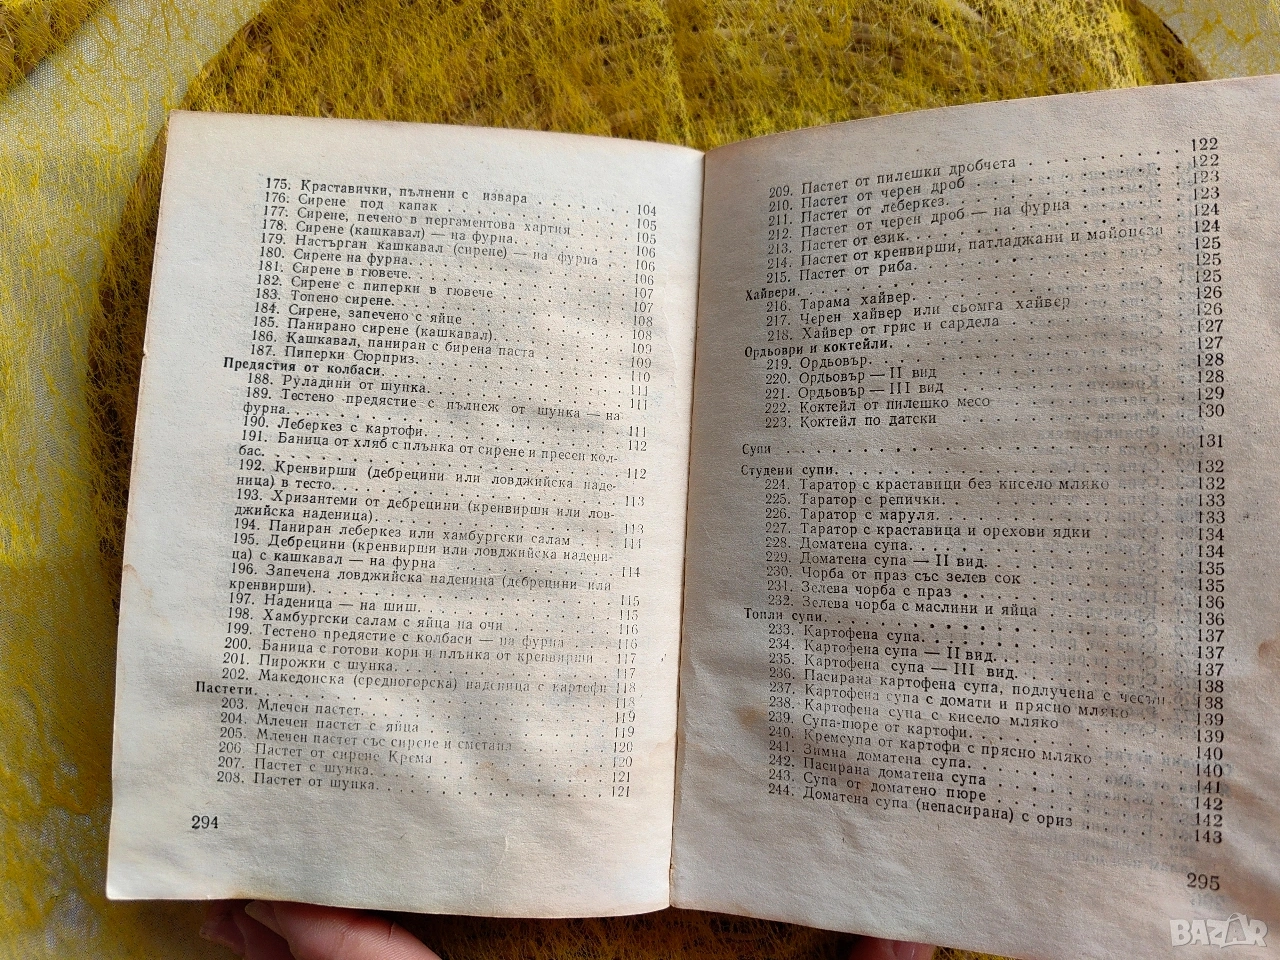 175. Краставички, пълнени с извара . . . . . . . 104
176. Сирене под капак . . . . . . . 105
177. Сирене, печено в пергаментова хартия . . . 105
178. Сирене (кашкавал) — на фурна . . . . . . 106
179. Настърган кашкавал (сирене) — на фурна . . 106
180. Сирене на фурна . . . . . . . 106
181. Сирене в гювече . . . . . . . 107
182. Сирене с пиперки в гювече . . . . . . . 107
183. Топено сирене . . . . . . . 108
184. Сирене, запечено с яйце . . . . . . . 108
185. Панирано сирене (кашкавал) . . . . . . . 109
186. Кашкавал, паниран с бирена паста . . . . . 109
187. Пиперки Сюрприз . . . . . . . 110
Предястия от колбаси . . . . . . . 111
188. Руладини от шунка . . . . . . . 111
189. Тестено предястие с пълнеж от шунка — на
фурна . . . . . . . 111
190. Леберкез с картофи . . . . . . . 112
191. Баница от хляб с плънка от сирене и пресен кол-
бас . . . . . . . 112
192. Кренвирши (дебрецини или ловджийска наде-
ница) в тесто . . . . . . . 113
193. Хризантеми от дебрецини (кренвирши или лов-
джийска наденица) . . . . . . . 113
194. Паниран леберкез или хамбургски салам . . . 114
195. Дебрецини (кренвирши или ловджийска надени-
ца) с кашкавал — на фурна . . . . . . . 114
196. Запечена ловджийска наденица (дебрецини или
кренвирши) . . . . . . . 115
197. Наденица — на шиш . . . . . . . 115
198. Хамбургски салам с яйца на очи . . . . . . 116
199. Тестено предястие с колбаси — на фурна . . . 116
200. Баница с готови кори и плънка от кренвирши . . 117
201. Пирожки с шунка . . . . . . . 117
202. Македонска (средногорска) наденица с картофи 118
Пастети . . . . . . . 118
203. Млечен пастет . . . . . . . 119
204. Млечен пастет с яйца . . . . . . . 119
205. Млечен пастет със сирене и сметана . . . . 120
206. Пастет от сирене Крема . . . . . . . 120
207. Пастет с шунка . . . . . . . 121
208. Пастет от шунка . . . . . . . 121
294
122
209. Пастет от пилешки дробчета . . . . . . . 122
210. Пастет от черен дроб . . . . . . . 123
211. Пастет от леберкез . . . . . . . 123
212. Пастет от черен дроб — на фурна . . . . . 124
213. Пастет от език . . . . . . . 124
214. Пастет от кренвирши, патладжани и майонеза 125
215. Пастет от риба . . . . . . . 125
Хайвери . . . . . . . 126
216. Тарама хайвер . . . . . . . 126
217. Черен хайвер или сьомга хайвер . . . . . . 127
218. Хайвер от грис и сардела . . . . . . . 127
Ордьоври и коктейли . . . . . . . 128
219. Ордьовър . . . . . . . 128
220. Ордьовър — II вид . . . . . . . 129
221. Ордьовър — III вид . . . . . . . 130
222. Коктейл от пилешко месо
223. Коктейл по датски
Супи . . . . . . . 131
Студени супи . . . . . . . 132
224. Таратор с краставици без кисело мляко . . . 132
225. Таратор с репички . . . . . . . 133
226. Таратор с маруля . . . . . . . 133
227. Таратор с краставица и орехови ядки . . . . 134
228. Доматена супа . . . . . . . 134
229. Доматена супа — II вид . . . . . . . 135
230. Чорба от праз със зелев сок . . . . . . . 135
231. Зелева чорба с праз . . . . . . . 136
232. Зелева чорба с маслини и яйца . . . . . . 136
Топли супи . . . . . . . 137
233. Картофена супа . . . . . . . 137
234. Картофена супа — II вид . . . . . . . 137
235. Картофена супа — III вид . . . . . . . 138
236. Пасирана картофена супа, подлучена с чесън 138
237. Картофена супа с домати и прясно мляко . . 139
238. Картофена супа с кисело мляко . . . . . . 139
239. Супа-пюре от картофи . . . . . . . 140
240. Кремсупа от картофи с прясно мляко . . . . 140
241. Зимна доматена супа . . . . . . . 141
242. Пасирана доматена супа . . . . . . . 142
243. Супа от доматено пюре . . . . . . . 142
244. Доматена супа (непасирана) с ориз . . . . . 143
295
BAZAR